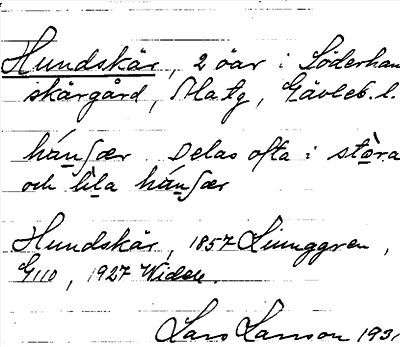 Hundskär, 2 öar i Söderham
skärgård, Matg, Gävleb. l.
hánʃær. Delas ofta i stòra
och lìla hánʃær
Hundskär, 1857 Ljunggren,
G110, 1927 Widén.
Lars Larsson 193